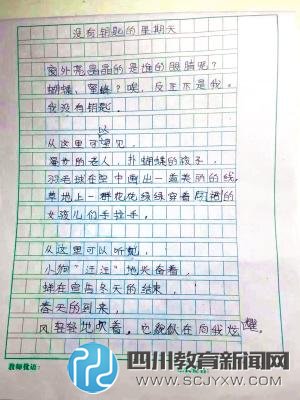 没有钥匙的星期天
窗外亮晶晶的是谁的眼睛呢?
蝴蝶、蜜蜂?唉,反正不是我。
我没有钥匙。
从这里可以望见,
的老人,扑蝴蝶的孩子,
羽毛球在空中画出一道美丽的线。
草地上一群花花绿绿穿着的
女孩儿们手拉手。
从这里可以听见,
小狗“汪汪”地叫着,
蝉在宣告冬天的结束,
春天的到来,
风轻轻地吹着,也貌似在向我炫耀。
教师批语:
四川教育新闻网
WWW.SCJYXW.COM